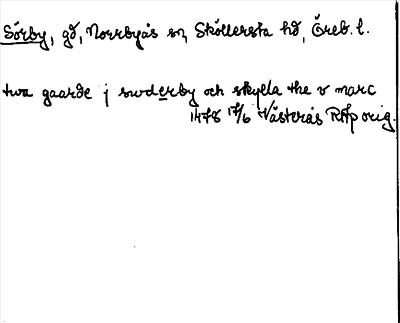 Sörby, gd, Norrbyås sn, Sköllersta hd, Öreb. l.
twa gaarde j swderby och skylla the v marc
1478 17/6 Västerås RAp orig.